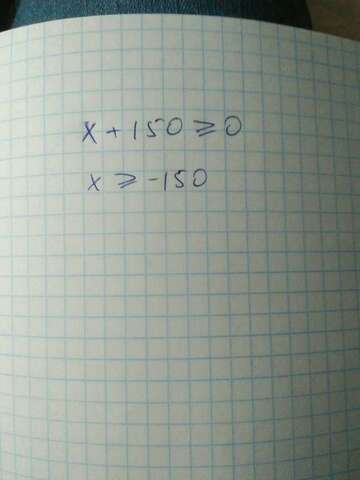 x + 150 ⩾ 0
x ⩾ -150